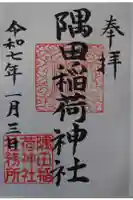 奉拝
隅田稲荷神社
令和七年一月三日
隅田稲
荷神社
務所